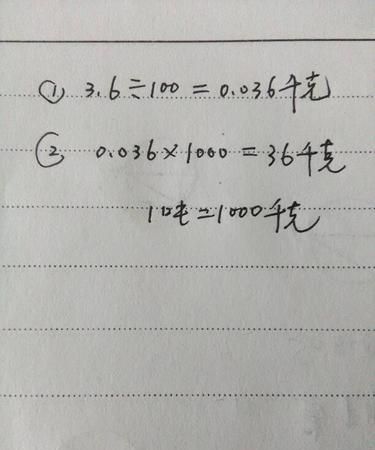 ① 3.6÷100=0.036千克
② 0.036×1000=36千克
1吨=1000千克